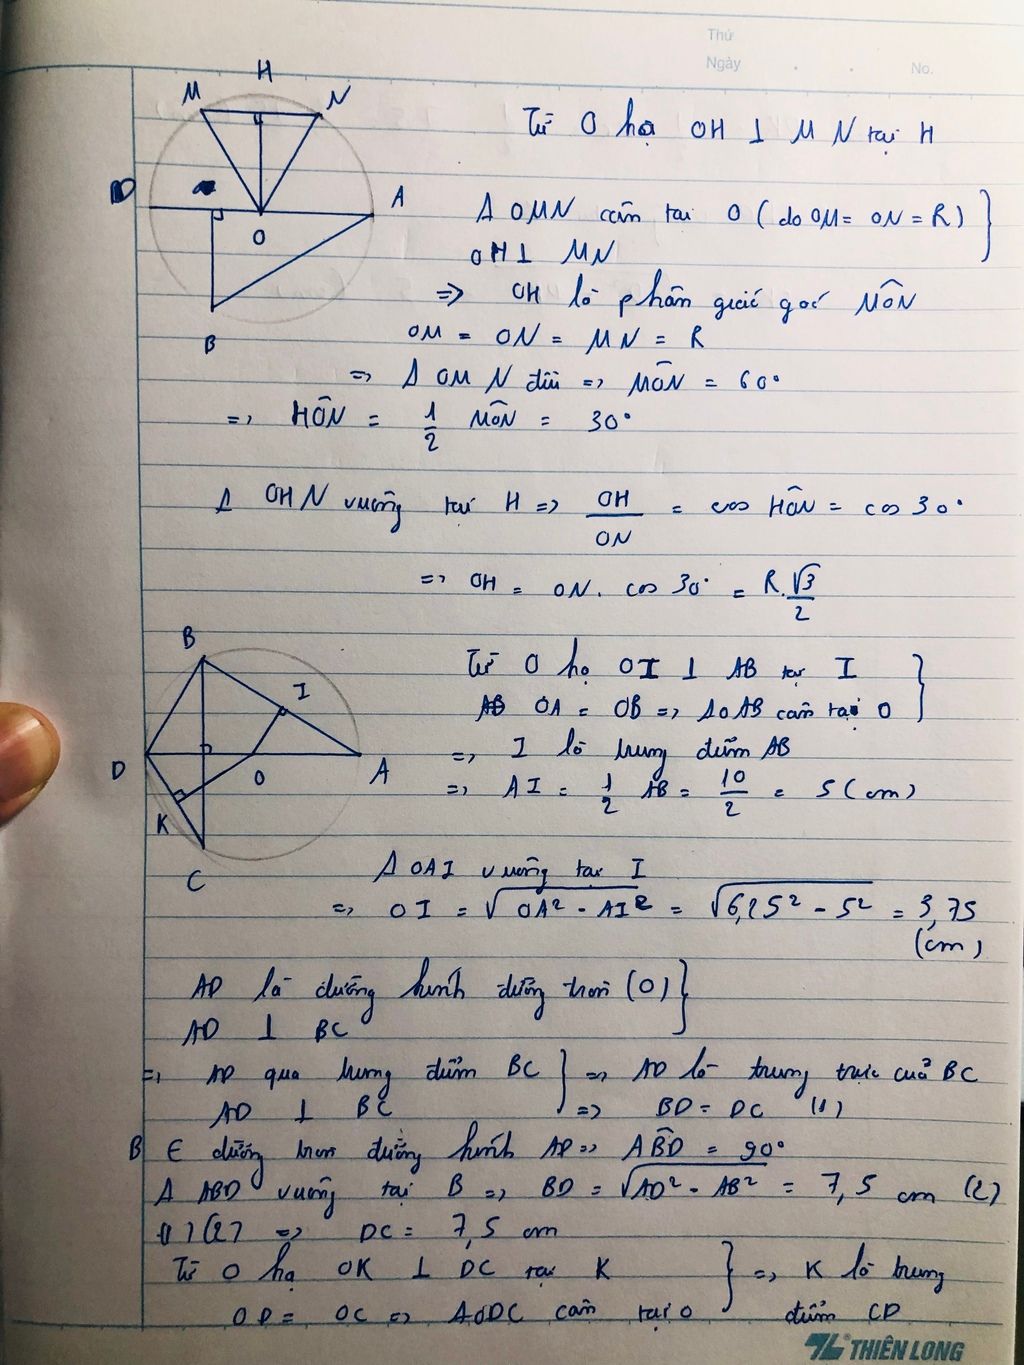 Thứ
Ngày . . No.
H
M N
Từ O hạ OH ⊥ MN tại H
D A
Δ OMN cân tại O (do OM = ON = R) }
O
OH ⊥ MN
=> OH là phân giác góc MÔN
B
OM = ON = MN = R
=> Δ OMN đều => MÔN = 60°
=> HÔN = 1/2 MÔN = 30°
Δ OHN vuông tại H => OH/ON = cos HÔN = cos 30°
=> OH = ON. cos 30° = R.√3/2
B
Từ O hạ OI ⊥ AB tại I }
I
OA = OB => ΔOAB cân tại O
=> I là trung điểm AB
D O A
=> AI = 1/2 AB = 10/2 = 5 (cm)
K
C
Δ OAI vuông tại I
=> OI = √OA² - AI² = √6,25² - 5² = 3,75
(cm)
AD là đường kính đường tròn (O) }
AD ⊥ BC
=> AD qua trung điểm BC } => AD là trung trực của BC
AD ⊥ BC => BD = DC (1)
B ∈ đường tròn đường kính AD => ABD = 90°
Δ ABD vuông tại B => BD = √AD² - AB² = 7,5 cm (2)
(1)(2) => DC = 7,5 cm
Từ O hạ OK ⊥ DC tại K } => K là trung
OD = OC => ΔODC cân tại O điểm CD
THIÊN LONG